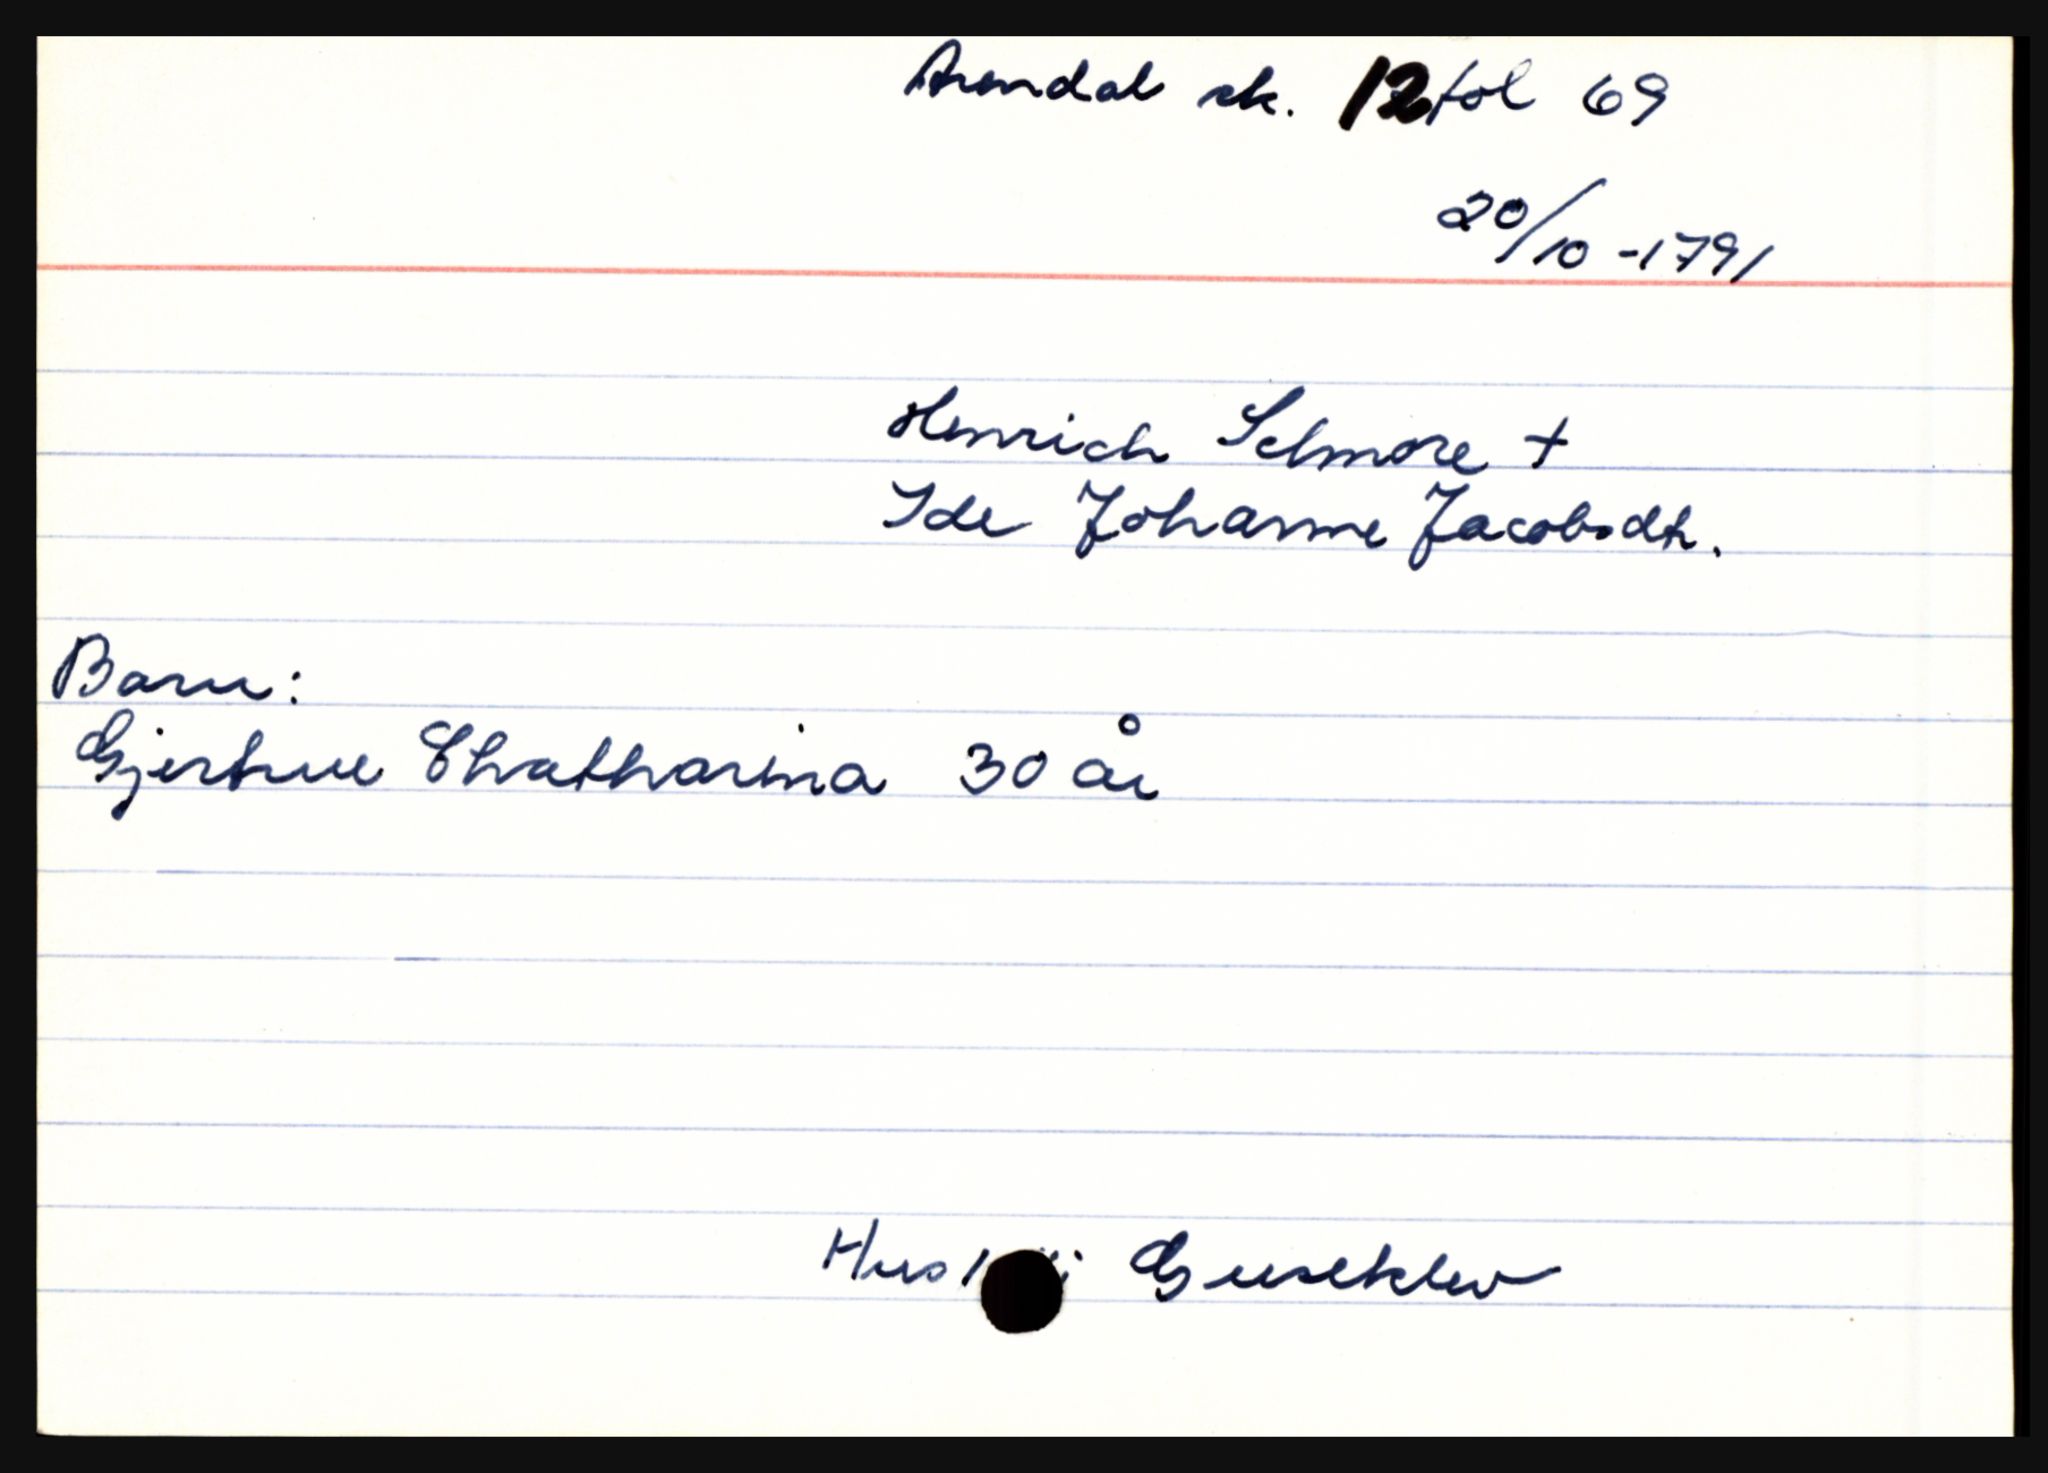 Arendal sk. 12 fol 69
20/10 - 1791
Henrich Selmore +
Ide Johanne Jacobsdt.
Barn:
Gjertrue Chatharina 30 år
Hus i